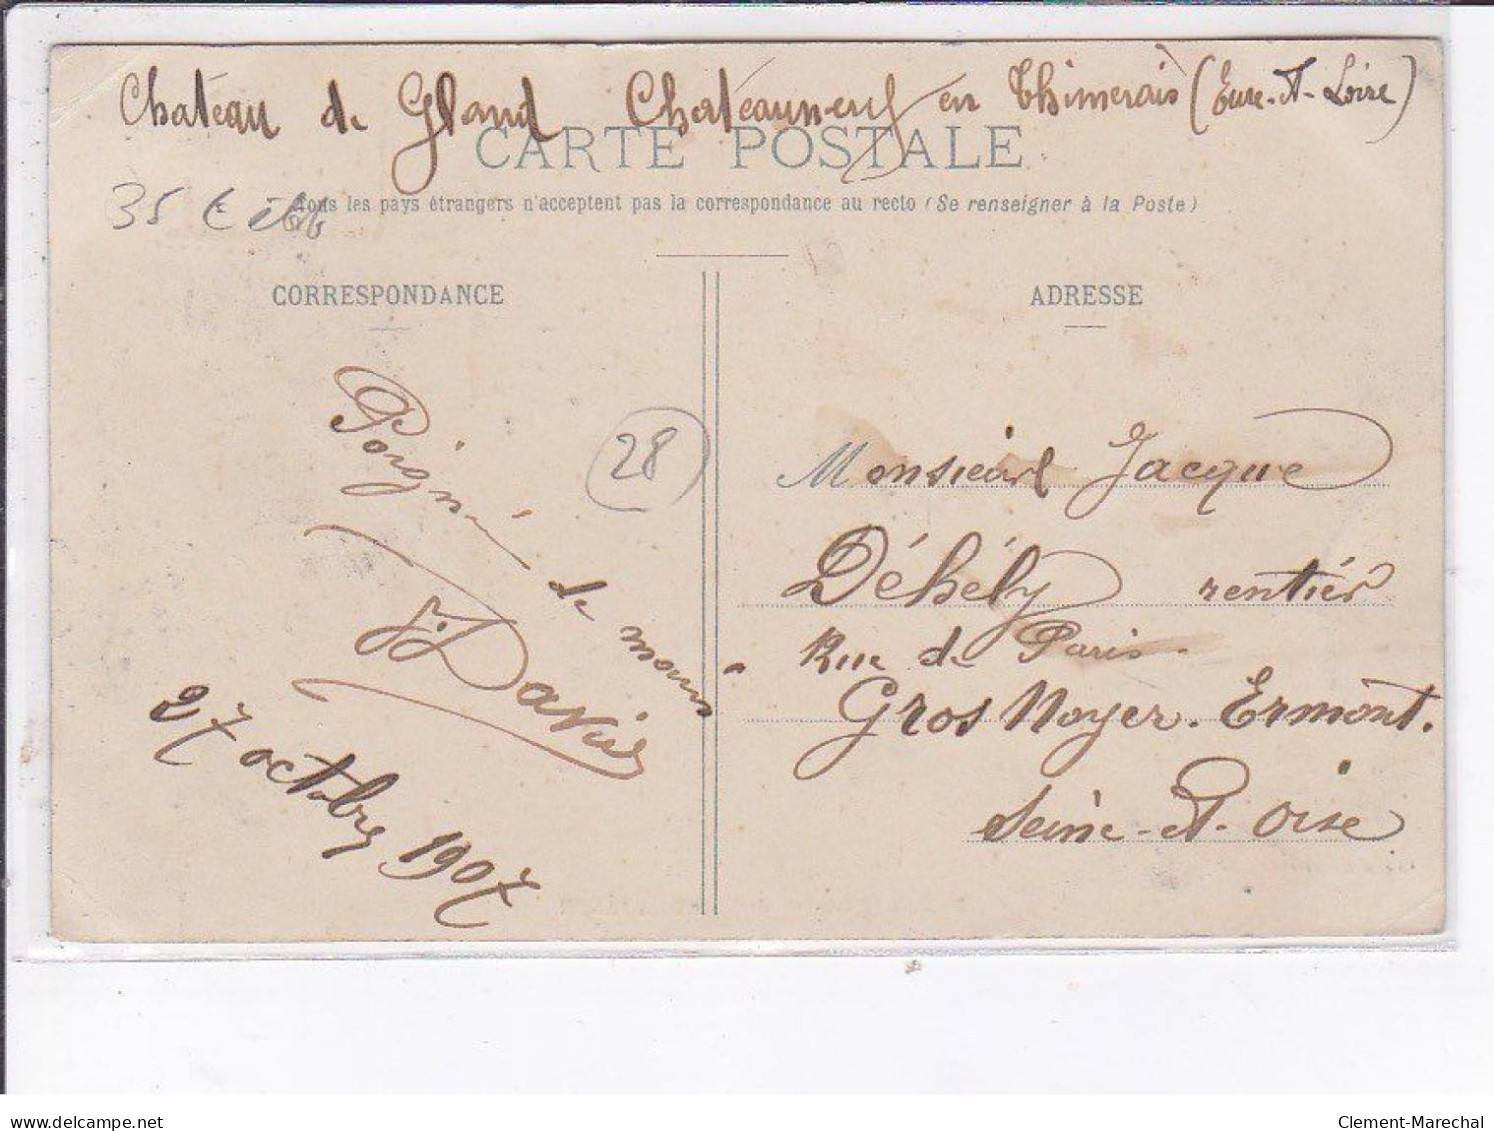 Chateau de Gland Chateauneuf en Thimerais (Eure-et-Loire)
CARTE POSTALE
35 €
Tous les pays étrangers n'acceptent pas la correspondance au recto (Se renseigner à la Poste)
CORRESPONDANCE
ADRESSE
Poignée de main
28
J. David
27 octobre 1907
Monsieur Jacque
Déhély rentier
Rue de Paris
Gros Noyer. Ermont.
Seine-et-Oise
delcampe.net
Clement-Marechal